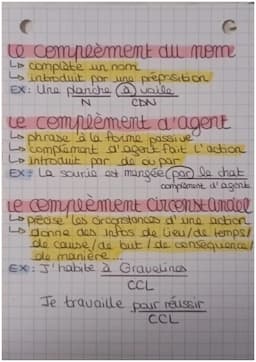 Le complèment du nom
↳ complète un nom
↳ introduit par une préposition
EX: Une planche à voile
N CDN
Le complèment d'agent
↳ phrase à la forme passive
↳ complèment d'agent fait l'action
↳ introduit par de ou par
EX: La souris est mangée par le chat
complèment d'agent
Le complèment circonstanciel
↳ précise les circonstances d'une action
↳ donne des infos de lieu/de temps/
de cause/de but/de conséquence/
de manière...
EX: J'habite à Gravelines
CCL
Je travaille pour réussir
CCL